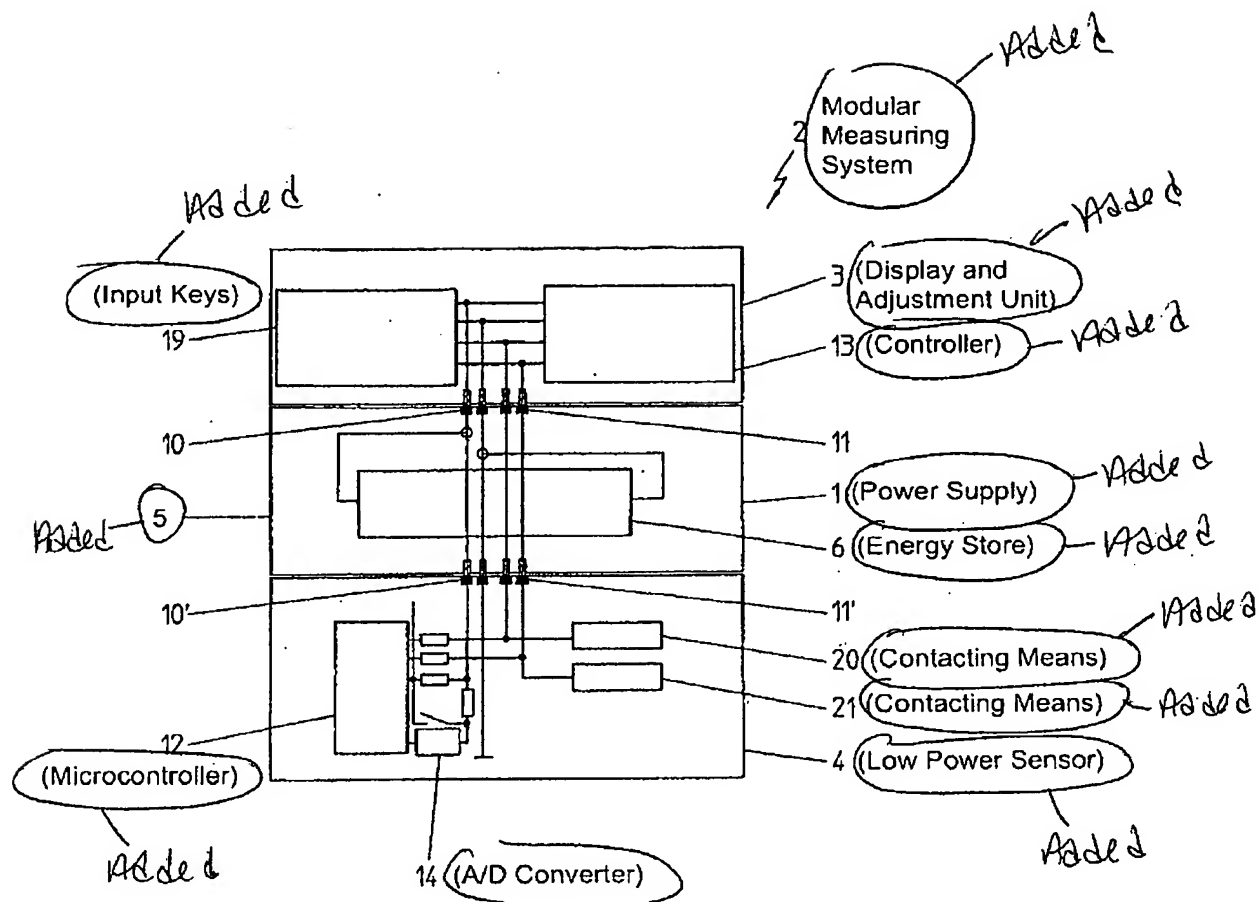 Added
2 Modular
Measuring
System
Added
Added
(Input Keys)
19
3 (Display and
Adjustment Unit)
13 (Controller)
Added
10
11
Added
1 (Power Supply)
Added
5
6 (Energy Store)
Added
10'
11'
Added
20 (Contacting Means)
21 (Contacting Means)
Added
12
(Microcontroller)
4 (Low Power Sensor)
Added
Added
14 (A/D Converter)